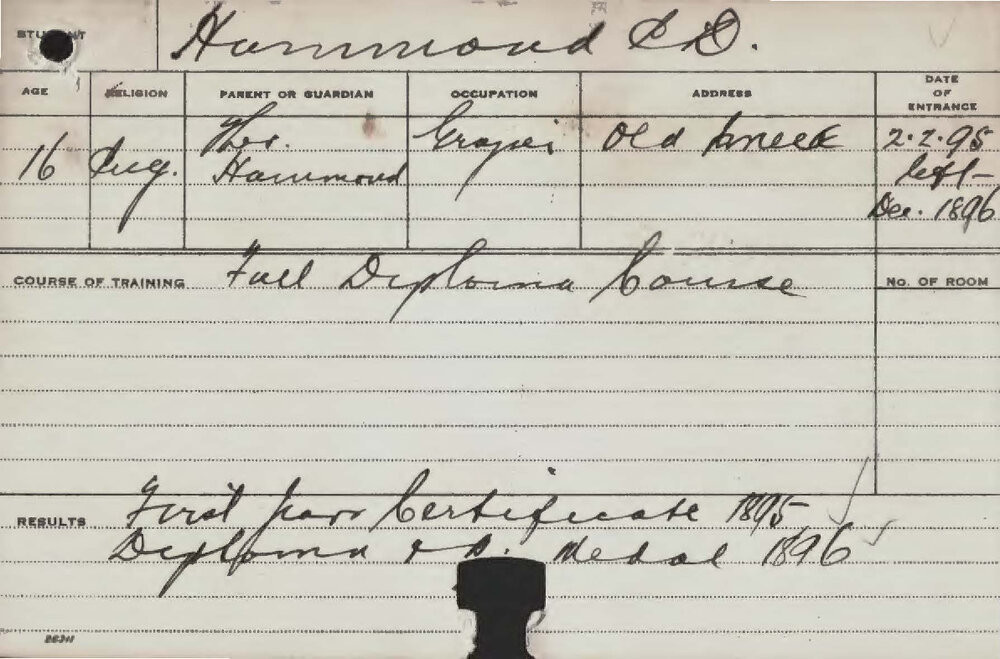 STUDENT Hammond
AGE RELIGION PARENT OR GUARDIAN OCCUPATION ADDRESS DATE OF ENTRANCE
16 Thos. Hammond Old 2.2.95
left
Dec. 1896
COURSE OF TRAINING Full Diploma Course NO. OF ROOM
RESULTS First Certificate 1895
Diploma & Medal 1896